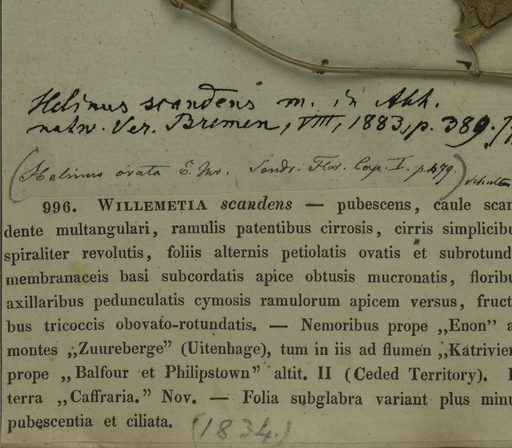 Helinus scandens m. in Abh.
natw. Ver. Bremen, VIII, 1883, p. 389.
(Helinus ovata E. M. Sondr. Flor. Cap. I. p. 479)
996. WILLEMETIA scandens — pubescens, caule scan
dente multangulari, ramulis patentibus cirrosis, cirris simplicibu
spiraliter revolutis, foliis alternis petiolatis ovatis et subrotund
membranaceis basi subcordatis apice obtusis mucronatis, floribu
axillaribus pedunculatis cymosis ramulorum apicem versus, fruct
bus tricoccis obovato-rotundatis. — Nemoribus prope „Enon" a
montes „Zuureberge" (Uitenhage), tum in iis ad flumen „Katrivier
prope „Balfour et Philipstown" altit. II (Ceded Territory). I
terra „Caffraria." Nov. — Folia subglabra variant plus minu
pubescentia et ciliata. (1834.)